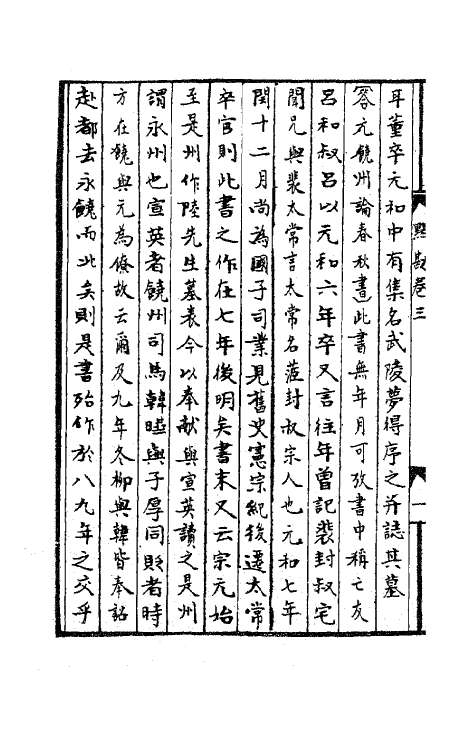 點勘卷三
一
耳董卒元和中有集名武陵夢得序之并誌其墓
答元饒州論春秋書此書無年月可攷書中稱亡友
呂和叔呂以元和六年卒又言往年曾記裴封叔宅
聞兄與裴太常言太常名蒞封叔宗人也元和七年
閏十二月尚為國子司業見舊史憲宗紀後遷太常
卒官則此書之作在七年後明矣書末又云宗元始
至是州作陸先生墓表今以奉獻與宣英讀之是州
謂永州也宣英者饒州司馬韓曄與子厚同貶者時
方在饒與元為僚故云爾及九年冬柳與韓皆奉詔
赴都去永饒而北矣則是書殆作於八九年之交乎